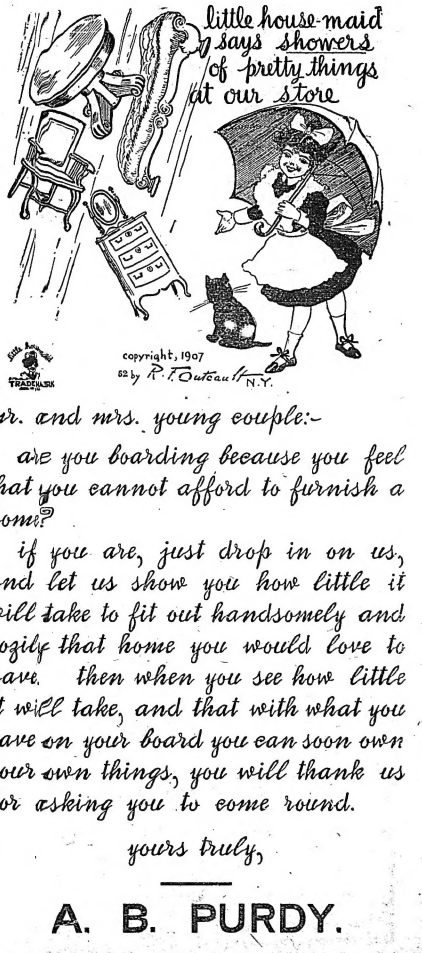 little house-maid
says showers
of pretty things
at our store
little housemaid
TRADEMARK
copyright, 1907
52 by R. F. Outcault N.Y.
r. and mrs. young couple:-
are you boarding because you feel
hat you cannot afford to furnish a
ome?
if you are, just drop in on us,
nd let us show you how little it
ill take to fit out handsomely and
ozily that home you would love to
ave. then when you see how little
t will take, and that with what you
ave on your board you can soon own
our own things, you will thank us
or asking you to come round.
yours truly,
A. B. PURDY.